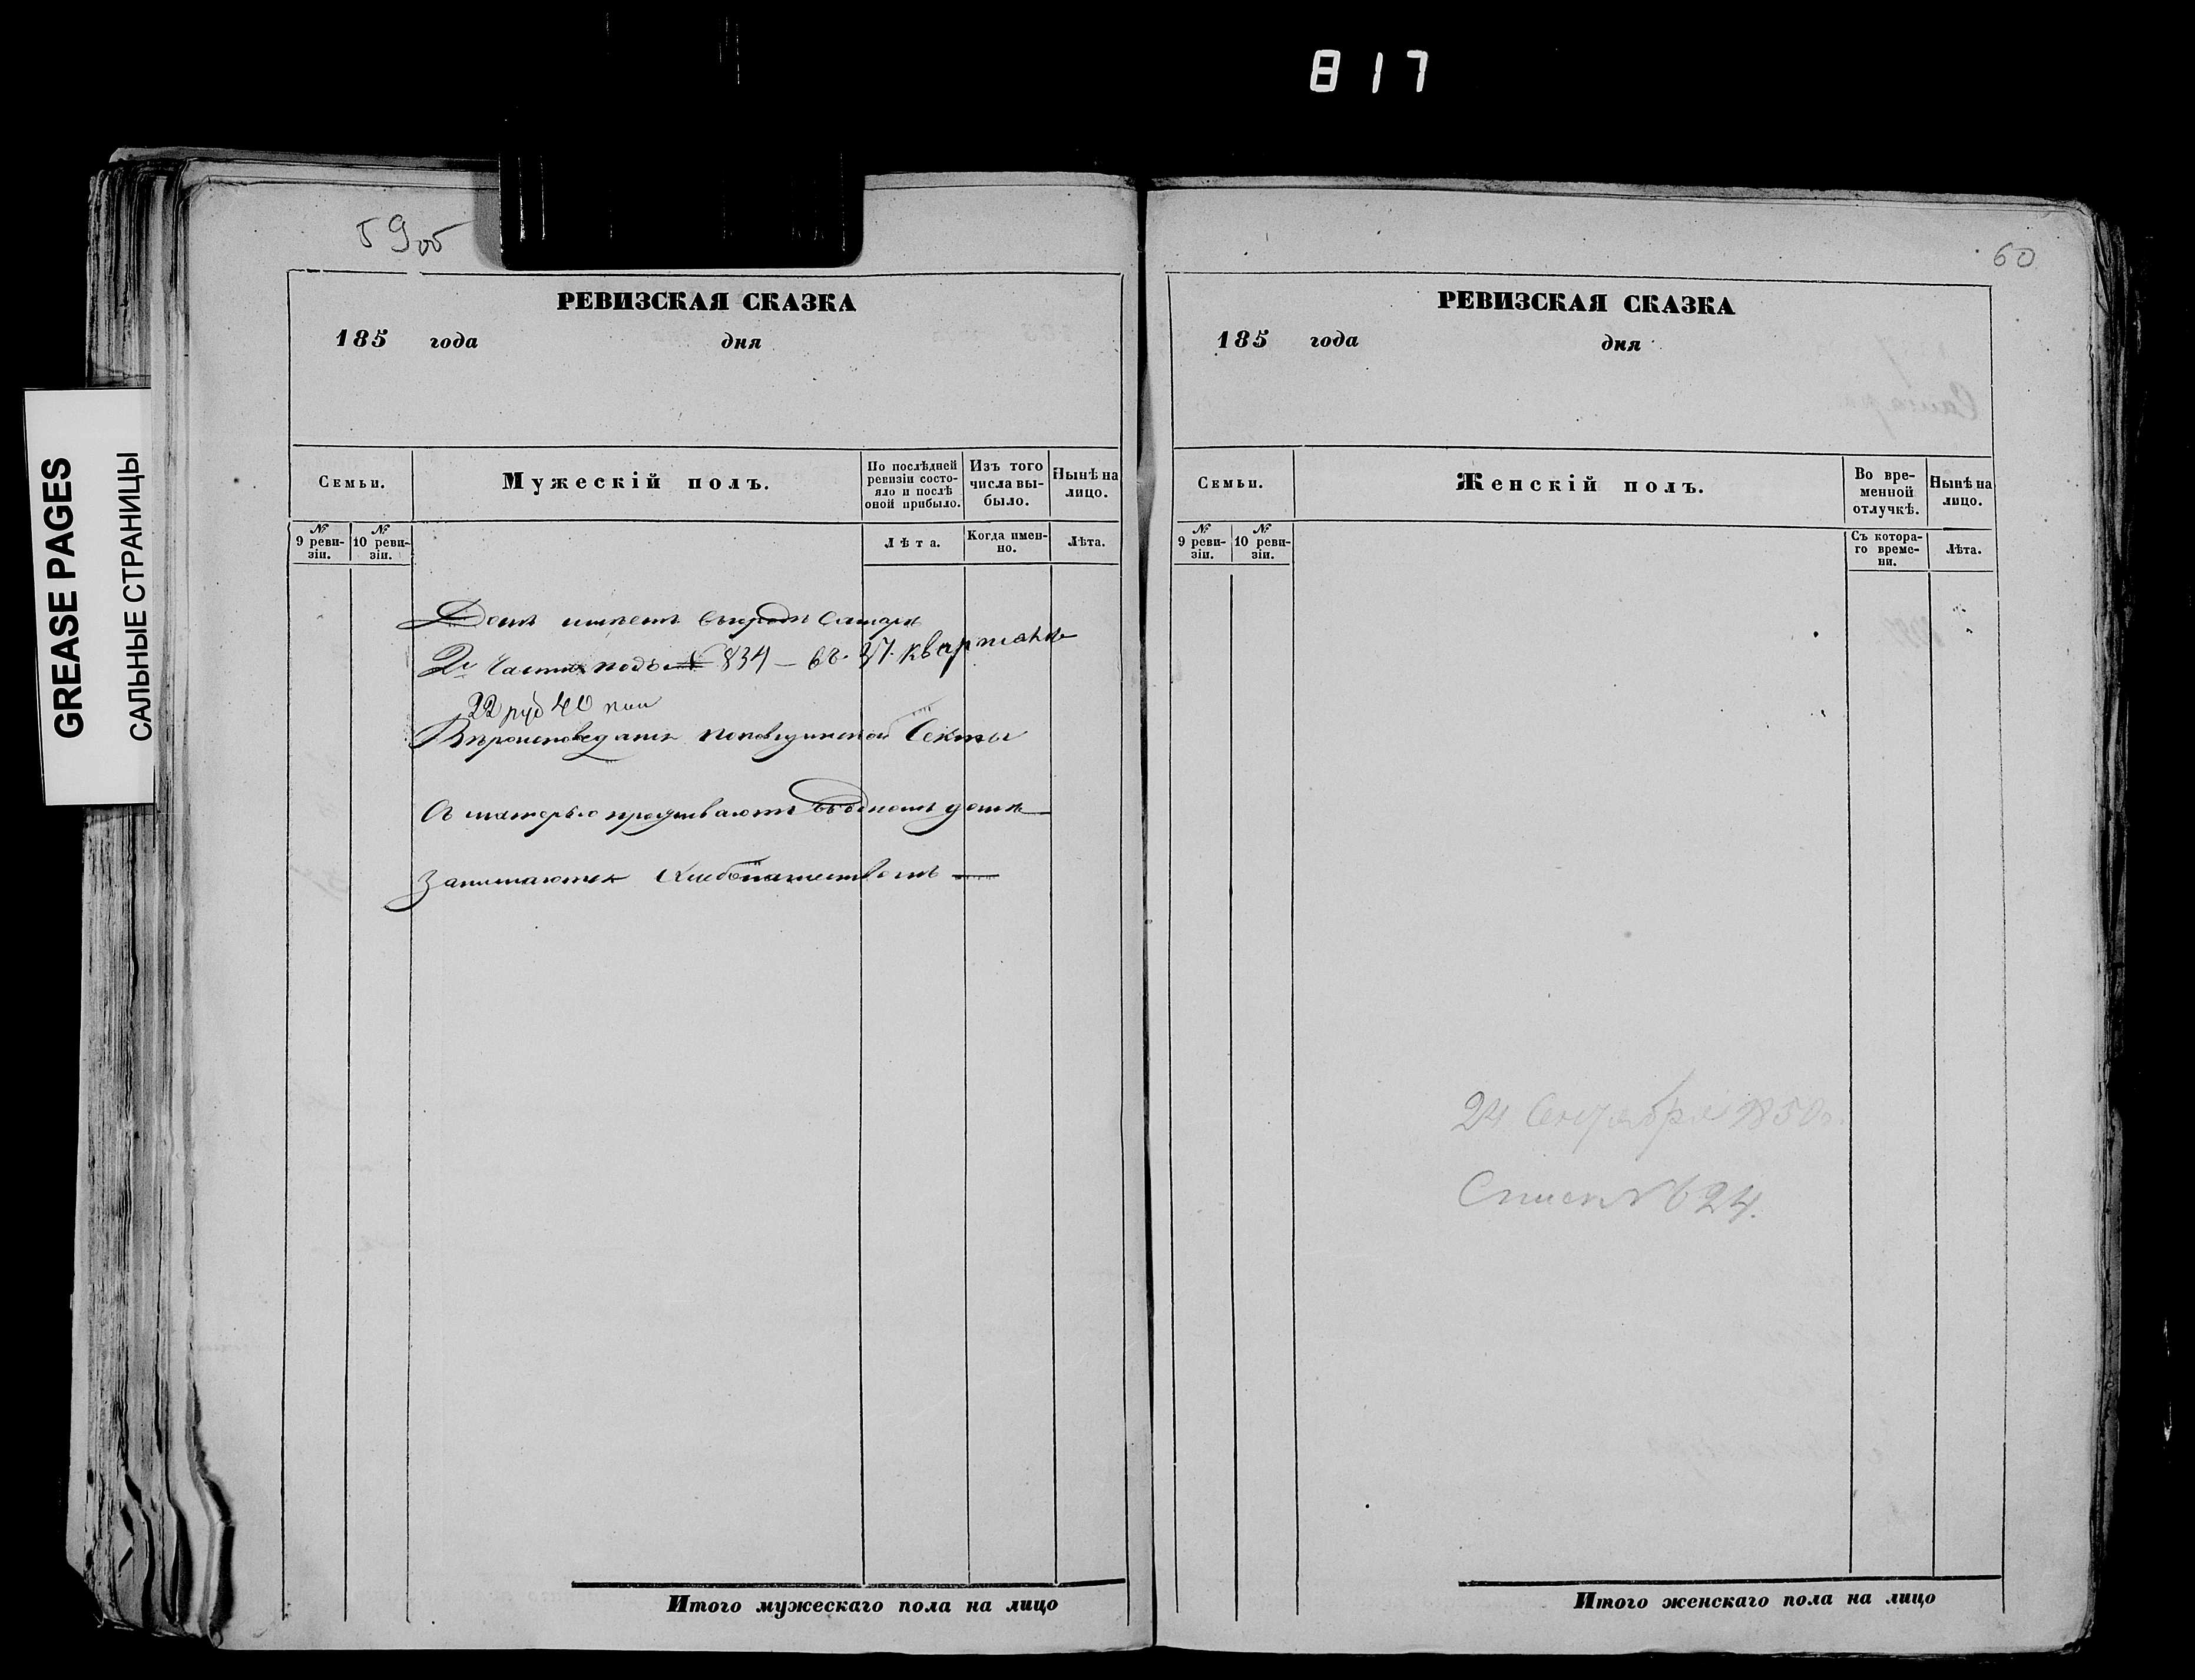 817
GREASE PAGES
САЛЬНЫЕ СТРАНИЦЫ
59об
РЕВИЗСКАЯ СКАЗКА
185 года дня
Семьи.
Мужескій полъ.
По послѣдней ревизіи состо-
яло и послѣ
оной прибыло.
Изъ того
числа вы-
было.
Нынѣ на
лицо.
№
9 реви-
зіи.
№
10 реви-
зіи.
Лѣта.
Когда имен-
но.
Лѣта.
Домъ имѣетъ въ городѣ Самарѣ
2й Части подъ № 834 – въ 37 кварталѣ
22 руб 40 коп
Вѣроисповеданія Секты
Съ матерью проживаютъ въ одномъ домѣ
Занимаются Хлебопашествомъ
Итого мужескаго пола на лицо
60
РЕВИЗСКАЯ СКАЗКА
185 года дня
Семьи.
Женскій полъ.
Во вре-
менной
отлучкѣ.
Нынѣ на
лицо.
№
9 реви-
зіи.
№
10 реви-
зіи.
Съ котора-
го време-
ни.
Лѣта.
24 1850
24.
Итого женскаго пола на лицо